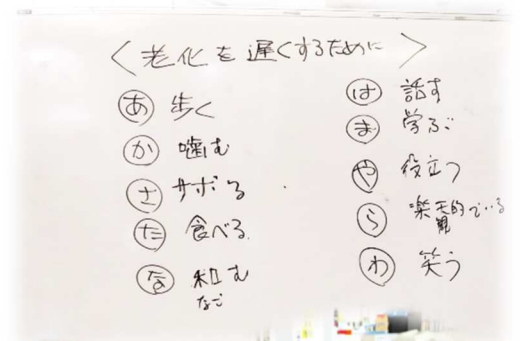 〈老化を遅くするために〉
あ 歩く
か 噛む
さ サボる
た 食べる
な 和む
なご
は 話す
ま 学ぶ
や 役立つ
ら 楽天的でいる
観
わ 笑う